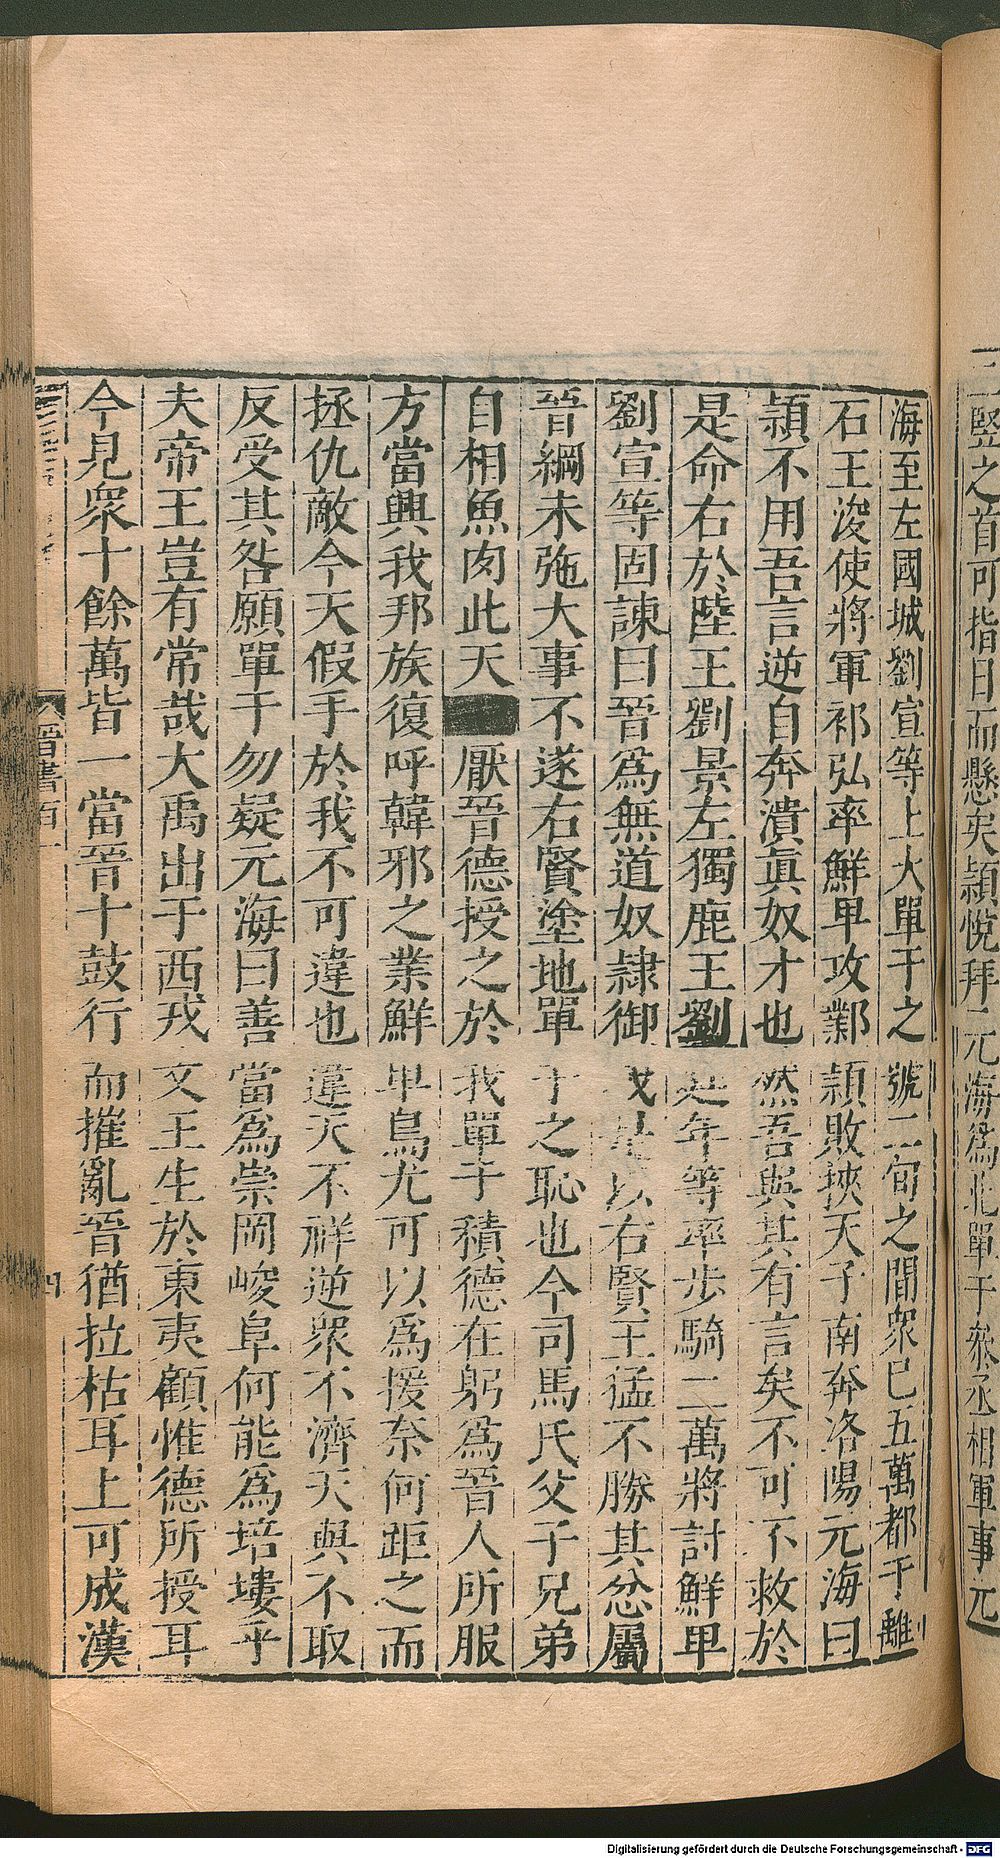 二豎之首可指日而懸矣穎悅拜元海爲北單于參丞相軍事元
海至左國城劉宣等上大單于之號二旬之間衆已五萬都于離
石王浚使將軍祁弘率鮮卑攻鄴穎敗挾天子南奔洛陽元海曰
穎不用吾言逆自奔潰眞奴才也然吾與其有言矣不可不救於
是命右於陸王劉景左獨鹿王劉延年等率步騎二萬將討鮮卑
劉宣等固諫曰晉爲無道奴隸御我是以右賢王猛不勝其忿屬
晉綱未弛大事不遂右賢塗地單于之恥也今司馬氏父子兄弟
自相魚肉此天厭晉德授之於我單于積德在躬爲晉人所服
方當興我邦族復呼韓邪之業鮮卑烏丸可以爲援奈何距之而
拯仇敵今天假手於我不可違也違天不祥逆衆不濟天與不取
反受其咎願單于勿疑元海曰善當爲崇岡峻阜何能爲培塿乎
夫帝王豈有常哉大禹出于西戎文王生於東夷顧惟德所授耳
今見衆十餘萬皆一當晉十鼓行而摧亂晉猶拉枯耳上可成漢
晉書百一
四
Digitalisierung gefördert durch die Deutsche Forschungsgemeinschaft - DFG